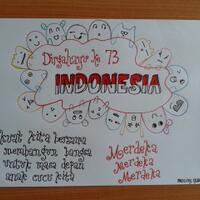 Dirgahayu ke 73
INDONESIA
kuat kita bersama
membangun bangsa
untuk masa depan
anak cucu kita
Merdeka
Merdeka
Merdeka